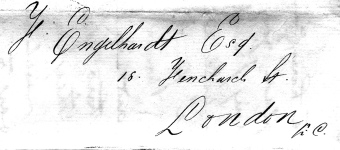 H. Engelhardt Esq.
18. Fenchurch St.
London E.C.